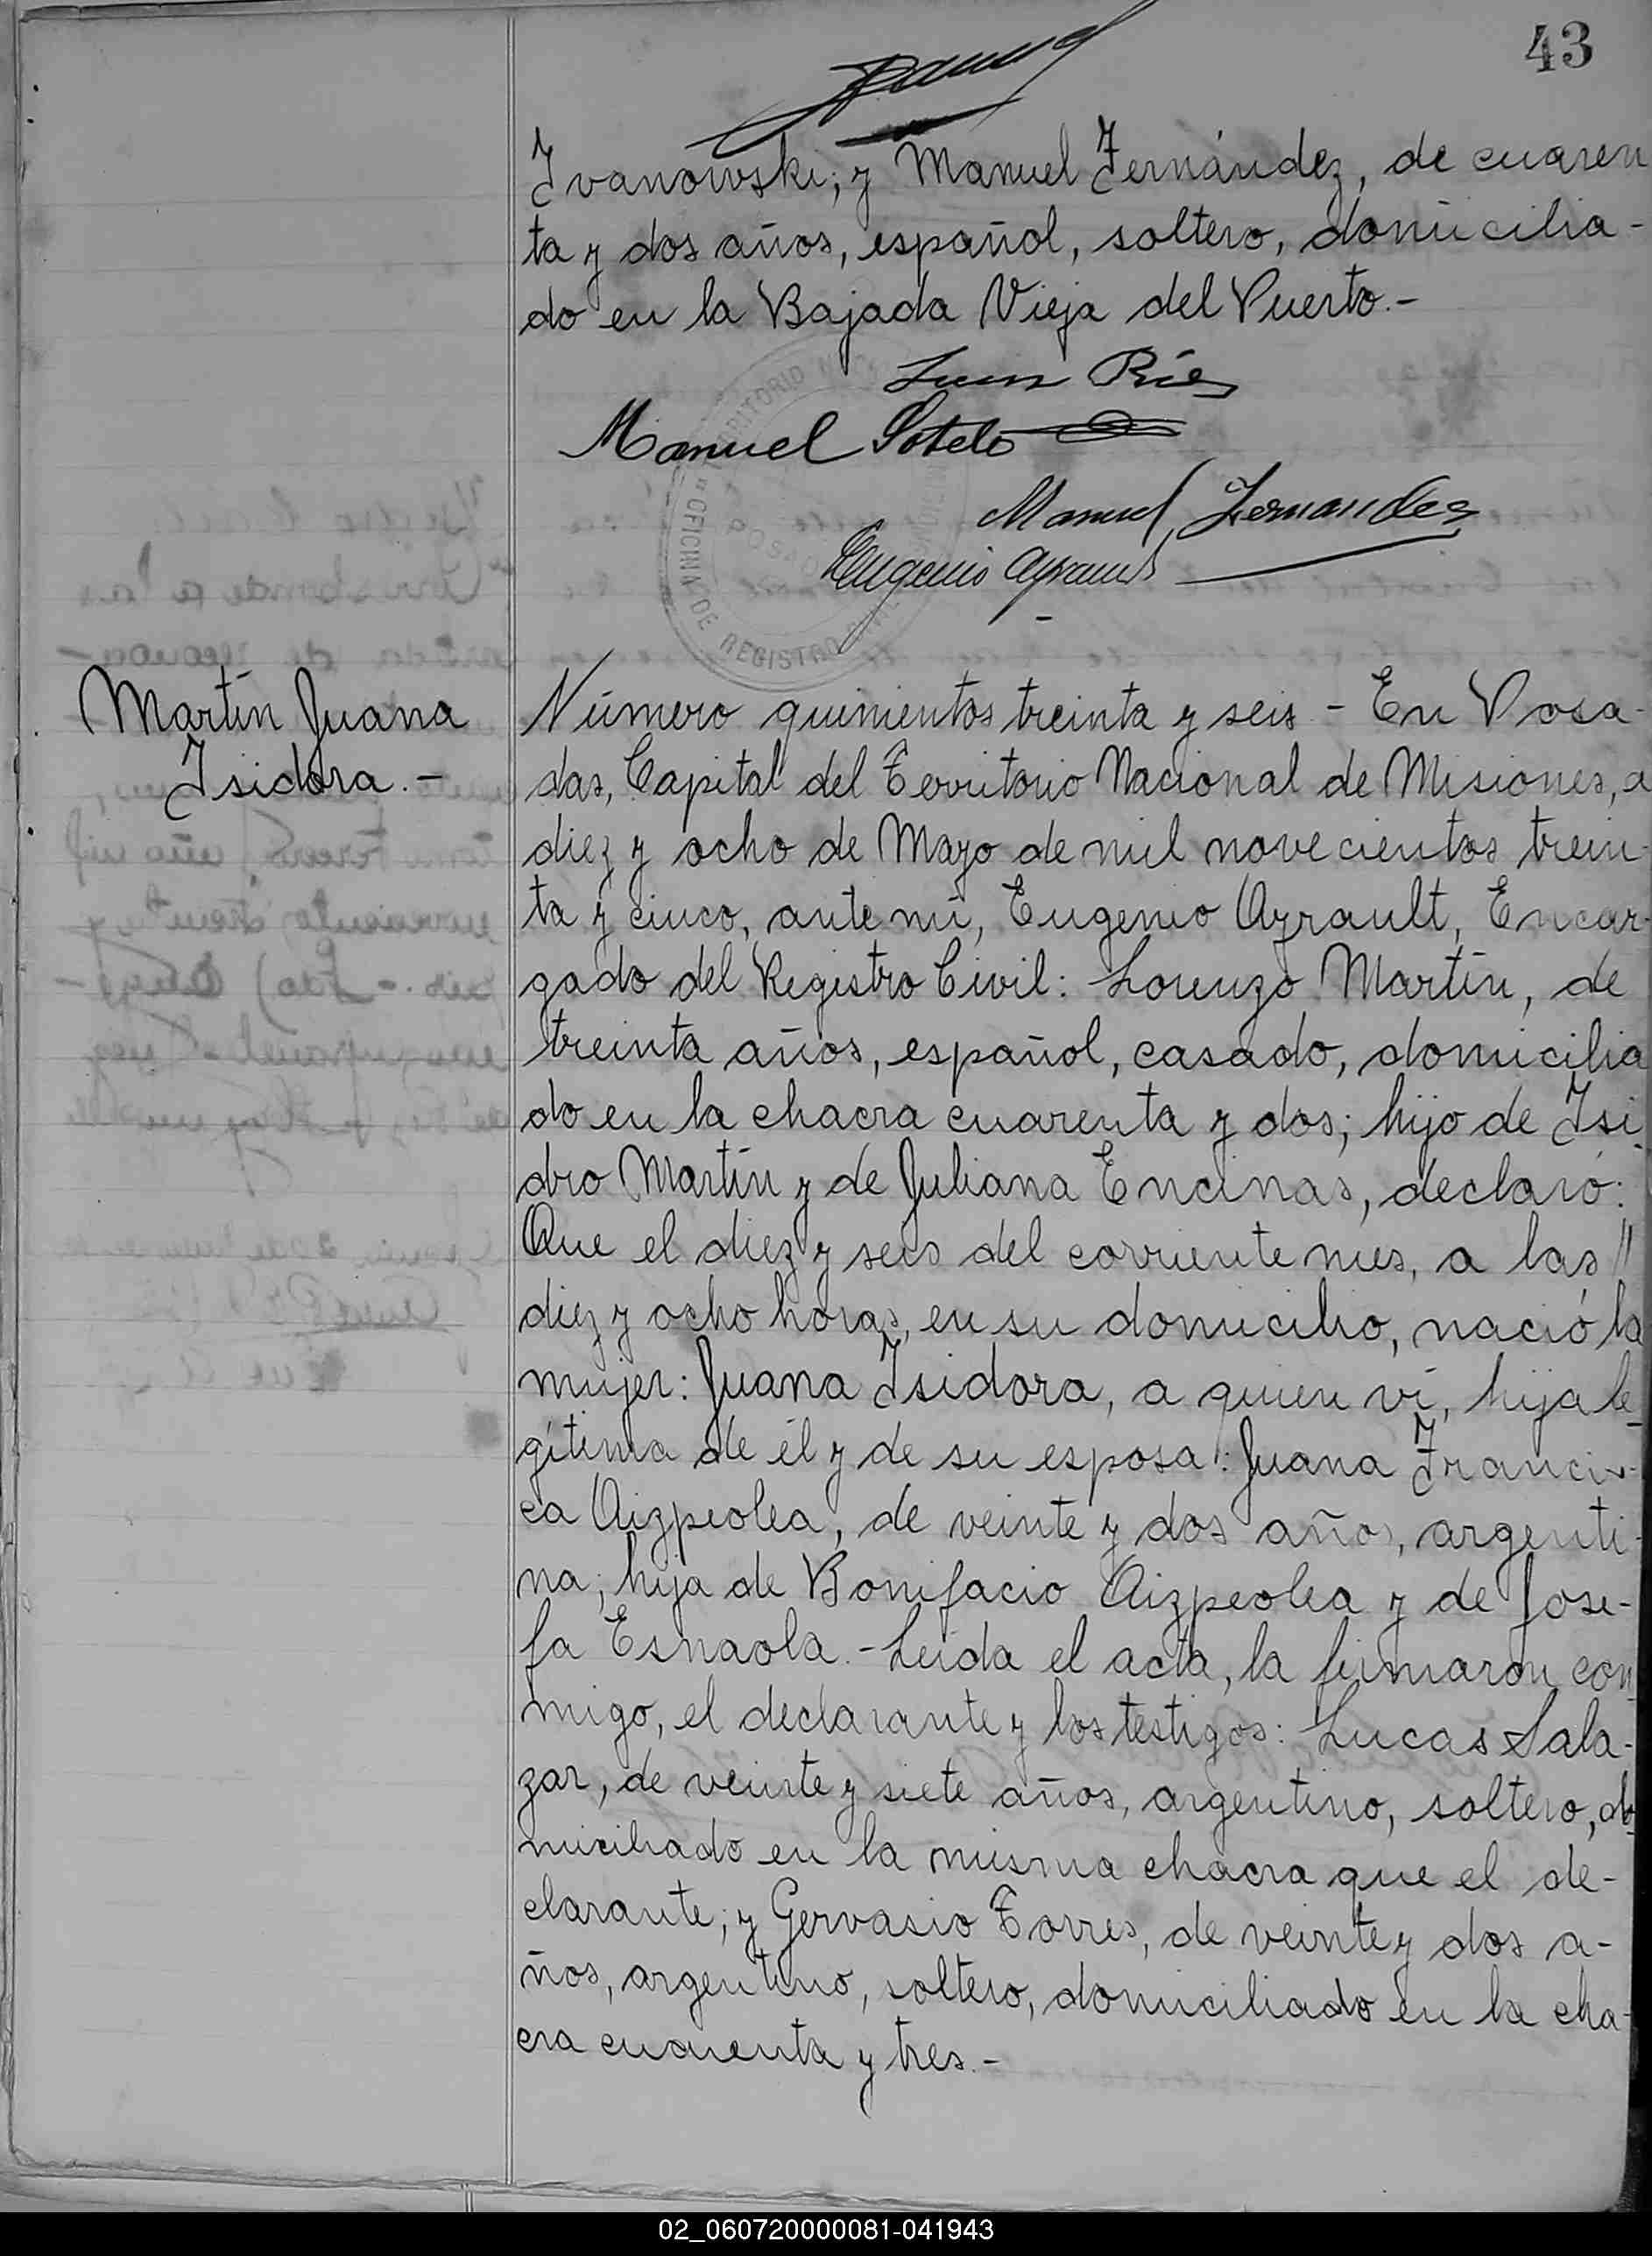 43
Ivanowski; y Manuel Fernández, de cuaren
ta y dos años, español, soltero, domicilia-
do en la Bajada Vieja del Puerto.-
Manuel Sotelo
Manuel Fernandez
Eugenio Ayrault
TERRITORIO
POSADAS
OFICINA DE REGISTRO
Martín Juana
Isidora.-
Número quinientos treinta y seis - En Posa-
das, Capital del Territorio Nacional de Misiones, a
diez y ocho de Mayo de mil novecientos trein-
ta y cinco, ante mí, Eugenio Ayrault, Encar-
gado del Registro Civil: Lorenzo Martín, de
treinta años, español, casado, domicilia
do en la chacra cuarenta y dos; hijo de Isi
dro Martín y de Juliana Encinas, declaró:
Que el diez y seis del corriente mes, a las //
diez y ocho horas, en su domicilio, nació la
mujer: Juana Isidora, a quien ví, hija le-
gítima de él y de su esposa: Juana Francis-
ca Aizpeolea, de veinte y dos años, argenti-
na; hija de Bonifacio Aizpeolea y de Jose-
fa Esnaola.- Leída el acta, la firmaron con
migo, el declarante y los testigos: Lucas Sala-
zar, de veinte y siete años, argentino, soltero, do
miciliado en la misma chacra que el de-
clarante; y Gervasio Torres, de veinte y dos a-
ños, argentino, soltero, domiciliado en la cha-
cra cuarenta y tres.-
02_060720000081-041943